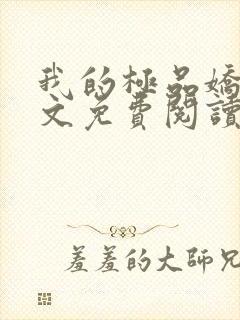 我的極品嬌
文免費閱讀
羞羞的大師兄